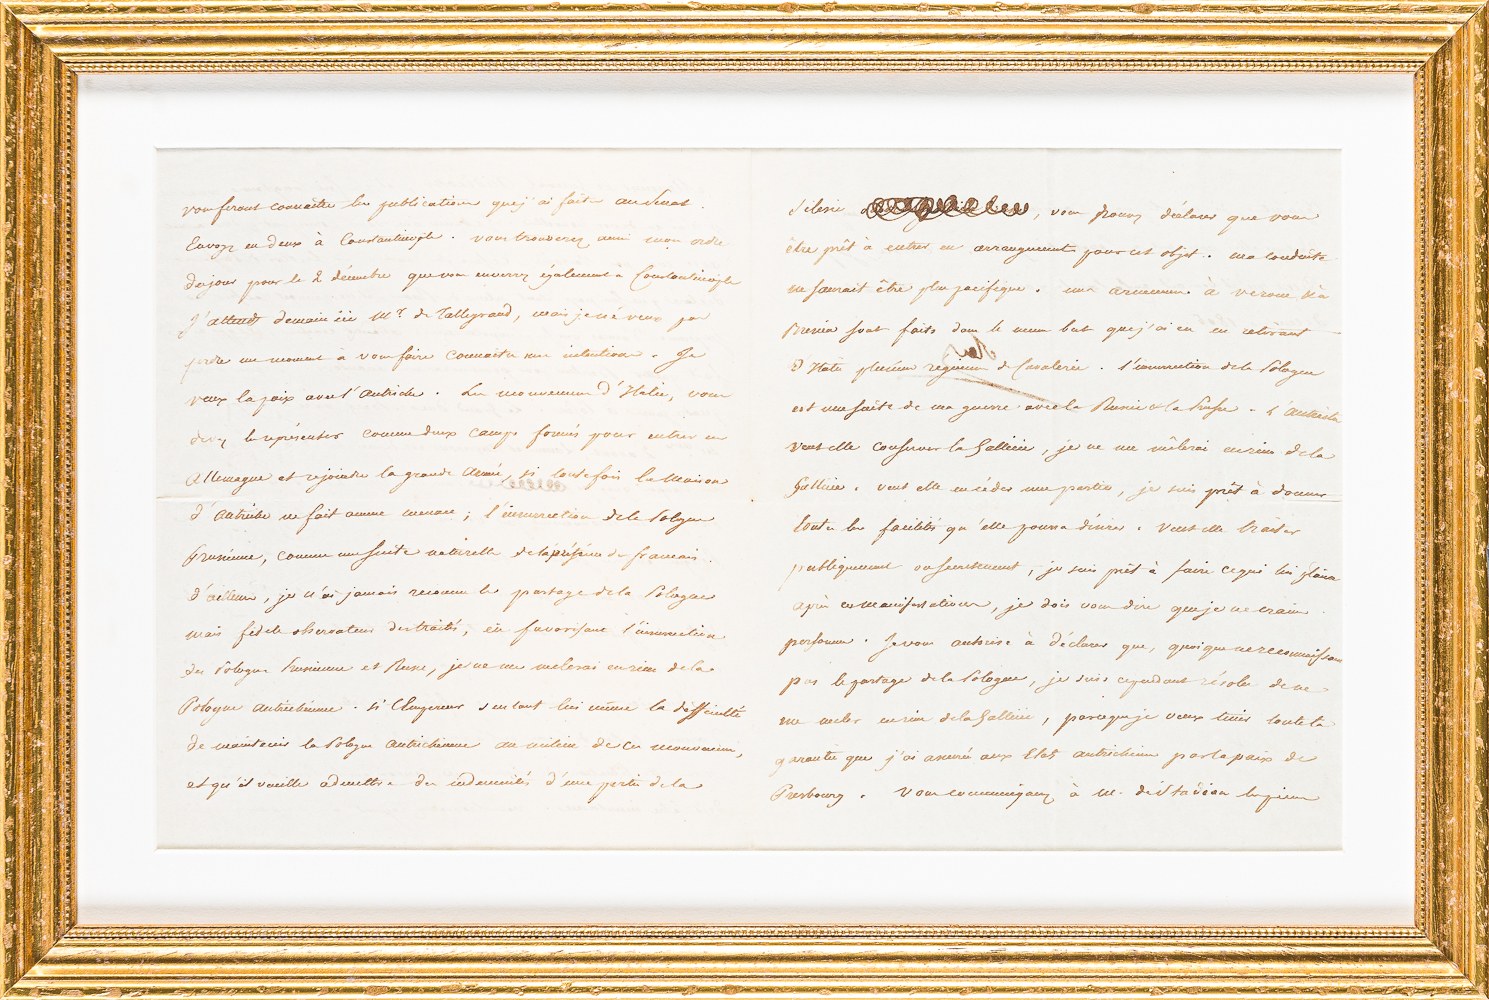 vous feront connaitre les publications que j'ai faites au Sénat.
Envoyez en deux à Constantinople. vous trouverez aussi mon ordre
du jour pour le 2 décembre que vous enverrez également à Constantinople
J'attends demain ici Mr. de Talleyrand, mais je ne veux pas
perdre un moment à vous faire connaitre mes intentions. Je
veux la paix avec l'Autriche. Les mouvemens d'Italie, vous
devez les représenter comme deux camps formés pour entrer en
Allemagne et rejoindre la grande Armée, si toutefois la Maison
d'Autriche ne fait aucune menace; l'insurrection de la Pologne
Prussienne, comme une suite naturelle de la présence des français.
D'ailleurs, je n'ai jamais reconnu le partage de la Pologne
mais fidèle observateur des traités, en favorisant l'insurrection
des Pologne Prussienne et Russe, je ne me mêlerai en rien de la
Pologne Autrichienne. Si l'Empereur sentant lui même la difficulté
de maintenir la Pologne Autrichienne au milieu de ces mouvemens,
et qu'il veuille admettre des indemnités d'une partie de la
Silésie, vous pouvez déclarer que vous
être prêt à entrer en arrangement pour cet objet. ma conduite
ne saurait être plus pacifique. mes à verone et à
Brescia sont faits dans le même but que j'ai eu en retirant
d'Italie plusieurs régimens de Cavalerie. l'insurrection de la Pologne
est une suite de ma guerre avec la Russie et la Prusse. L'Autriche
veut elle conserver la Gallicie, je ne me mêlerai en rien de la
Gallicie. veut elle en céder une partie, je suis prêt à donner
toutes les facilités qu'elle pourra désirer. Veut elle traiter
publiquement ou secrètement, je suis prêt à faire ce qui lui plaira
après ces manifestations, je dois vous dire que je ne crains
personne. Je vous autorise à déclarer que, quoique ne reconnaissant
pas le partage de la Pologne, je suis cependant résolu de ne
me mêler en rien de la Gallicie, parce que je veux tenir toute la
garantie que j'ai assuré aux Etats autrichiens par la paix de
Presbourg. Vous communiquerez à M. de Stadion les pièces